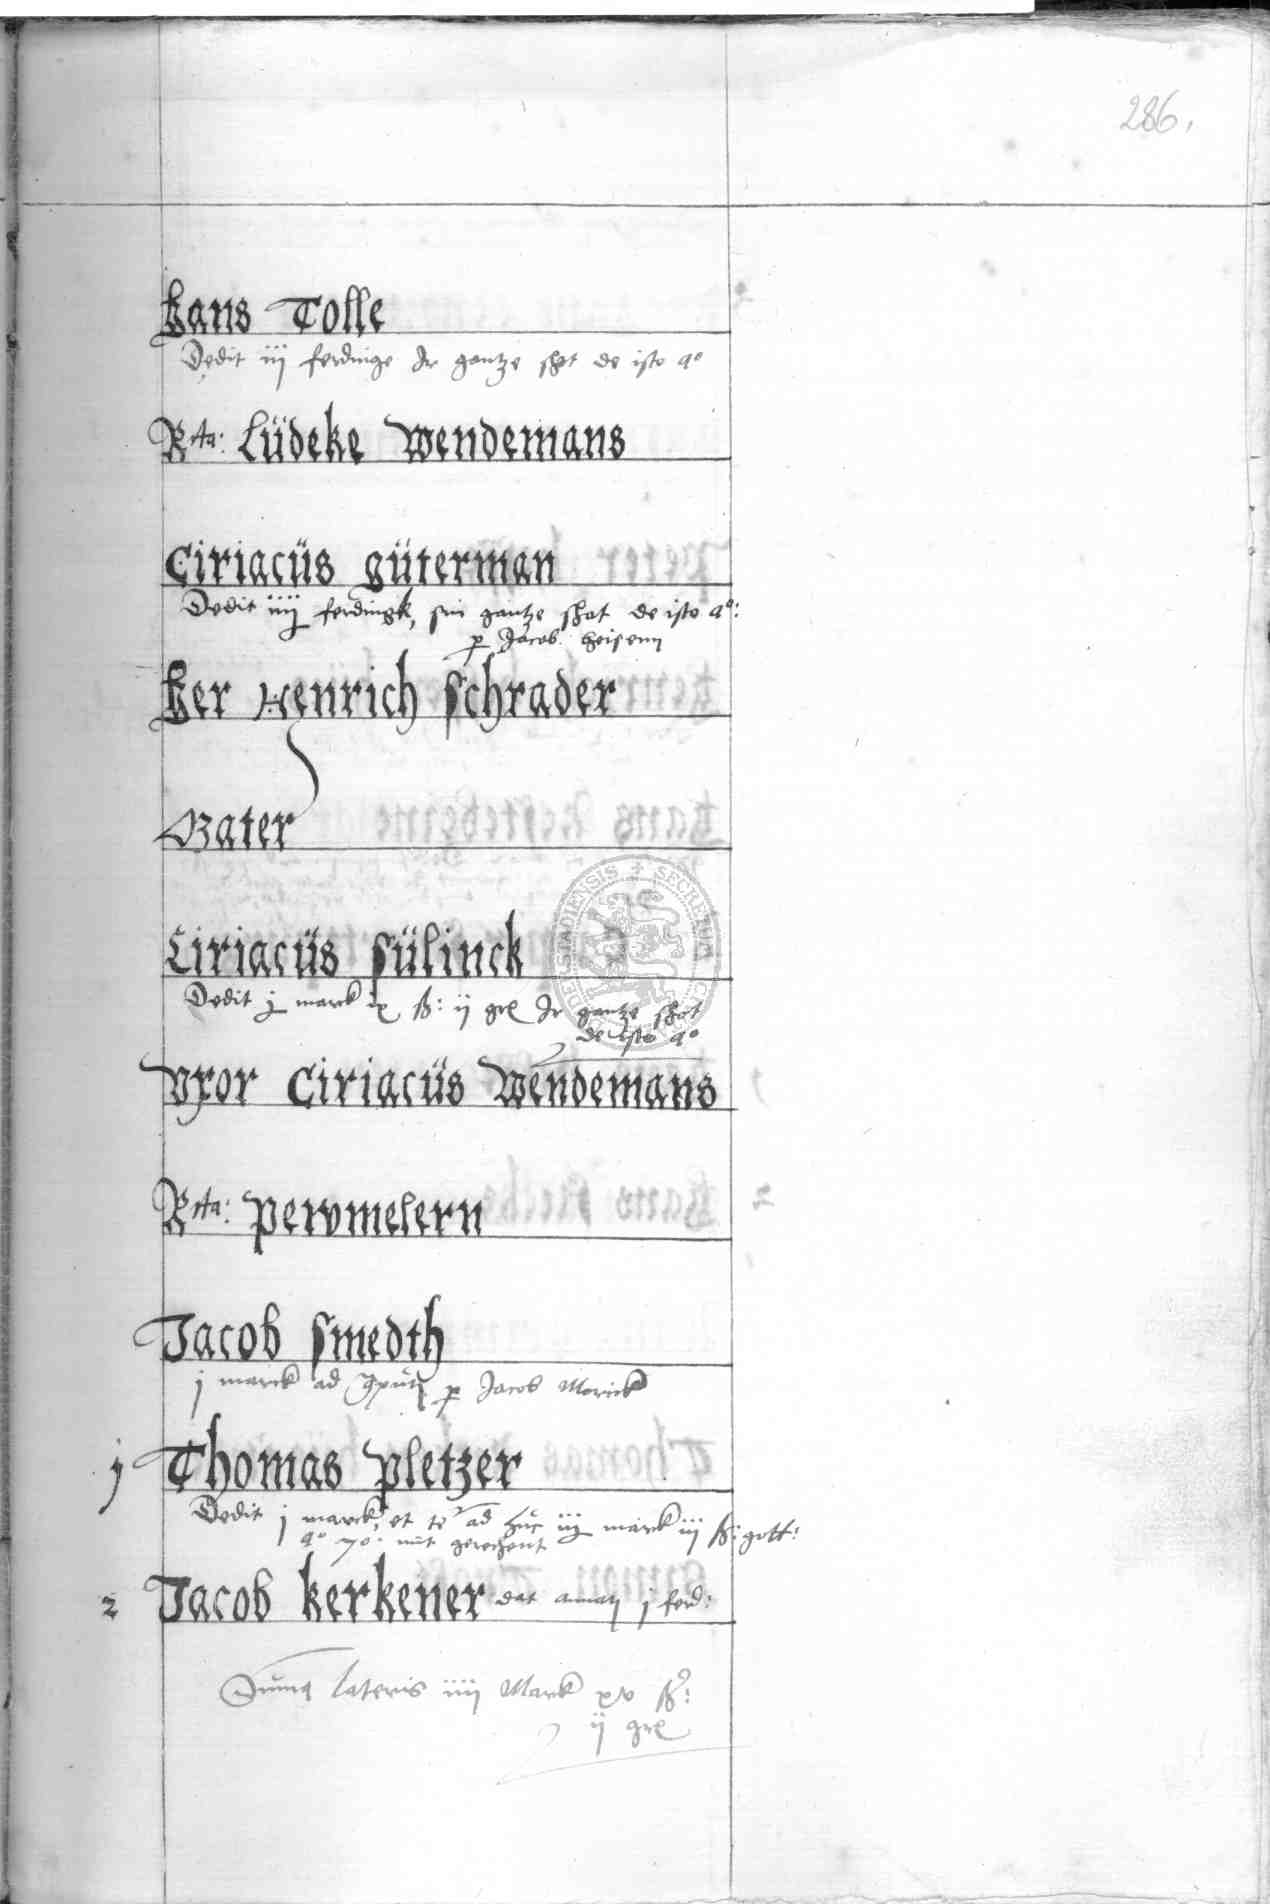 286.
Hans Tolle
Dedit iij ferdinge Ir gantze shot de isto a°
Rcta: Lüdeke Wendemans
Ciriacüs güterman
Dedit iiij ferdingk, sin gantze shot de isto a°:
p Jacob heisenn
Her Henrich Schrader
Vater
Ciriacüs sülinck
Dedit j marck ix ß: ij gr Ir gantze shot
de isto a°
Vxor Ciriacüs Wendemans
Rcta: pewmelern
Jacob smedth
j marck ad p Jacob Morick
j Thomas pletzer
Dedit j marck, et ad huc marck iij ß: gott:
a° 70. mit gerechent
2 Jacob kerkener dat j ferd:
Suma lateris iiij Mark xv ß:
ij gr
SECRETUM